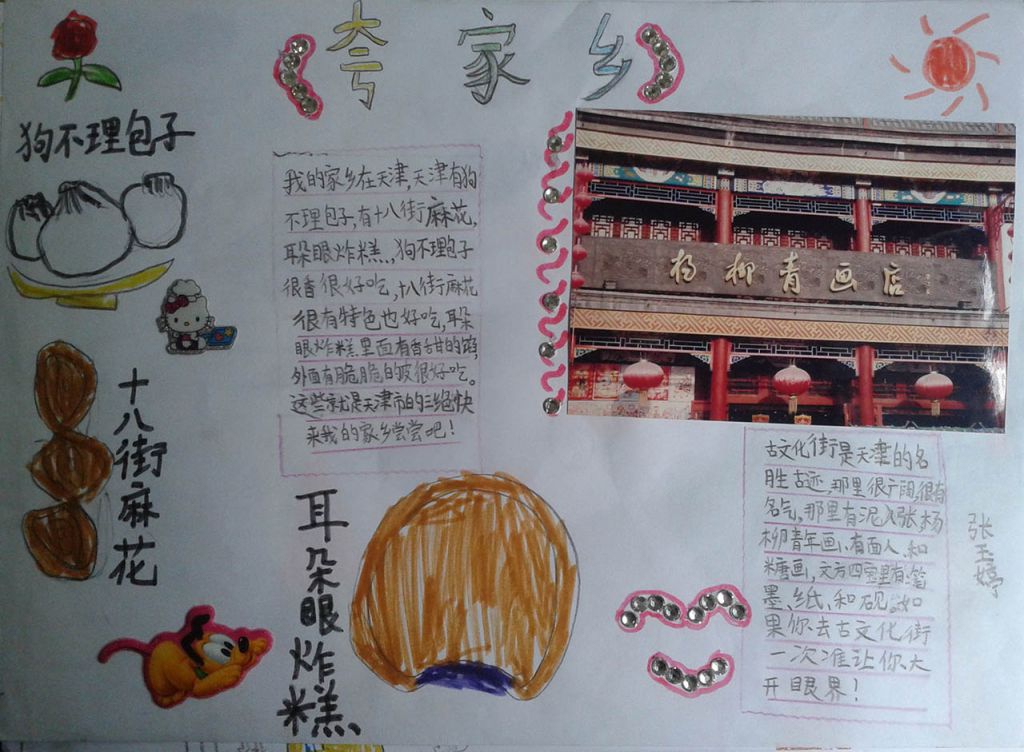 夸家乡
狗不理包子
我的家乡在天津,天津有狗
不理包子,有十八街麻花,
耳朵眼炸糕.,狗不理包子
很香很好吃,十八街麻花
很有特色也好吃,耳朵
眼炸糕里面有香甜的馅,
外面有脆脆的皮很好吃。
这些就是天津市的三绝快
来我的家乡尝尝吧!
杨柳青画店
十八街麻花
耳朵眼炸糕、
古文化街是天津的名
胜古迹,那里很广阔,很有
名气,那里有泥人张、杨
柳青年画、有面人、和
糖画,文房四宝里有:笔
墨、纸、和砚。如
果你去古文化街
一次准让你大
开眼界!
张玉婷